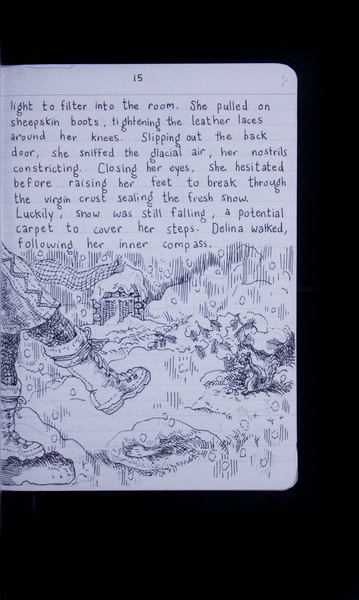 15
light to filter into the room. She pulled on
sheepskin boots, tightening the leather laces
around her knees. Slipping out the back
door, she sniffed the glacial air, her nostrils
constricting. Closing her eyes, she hesitated
before raising her feet to break through
the virgin crust sealing the fresh snow.
Luckily, snow was still falling, a potential
carpet to cover her steps. Delina walked,
following her inner compass.